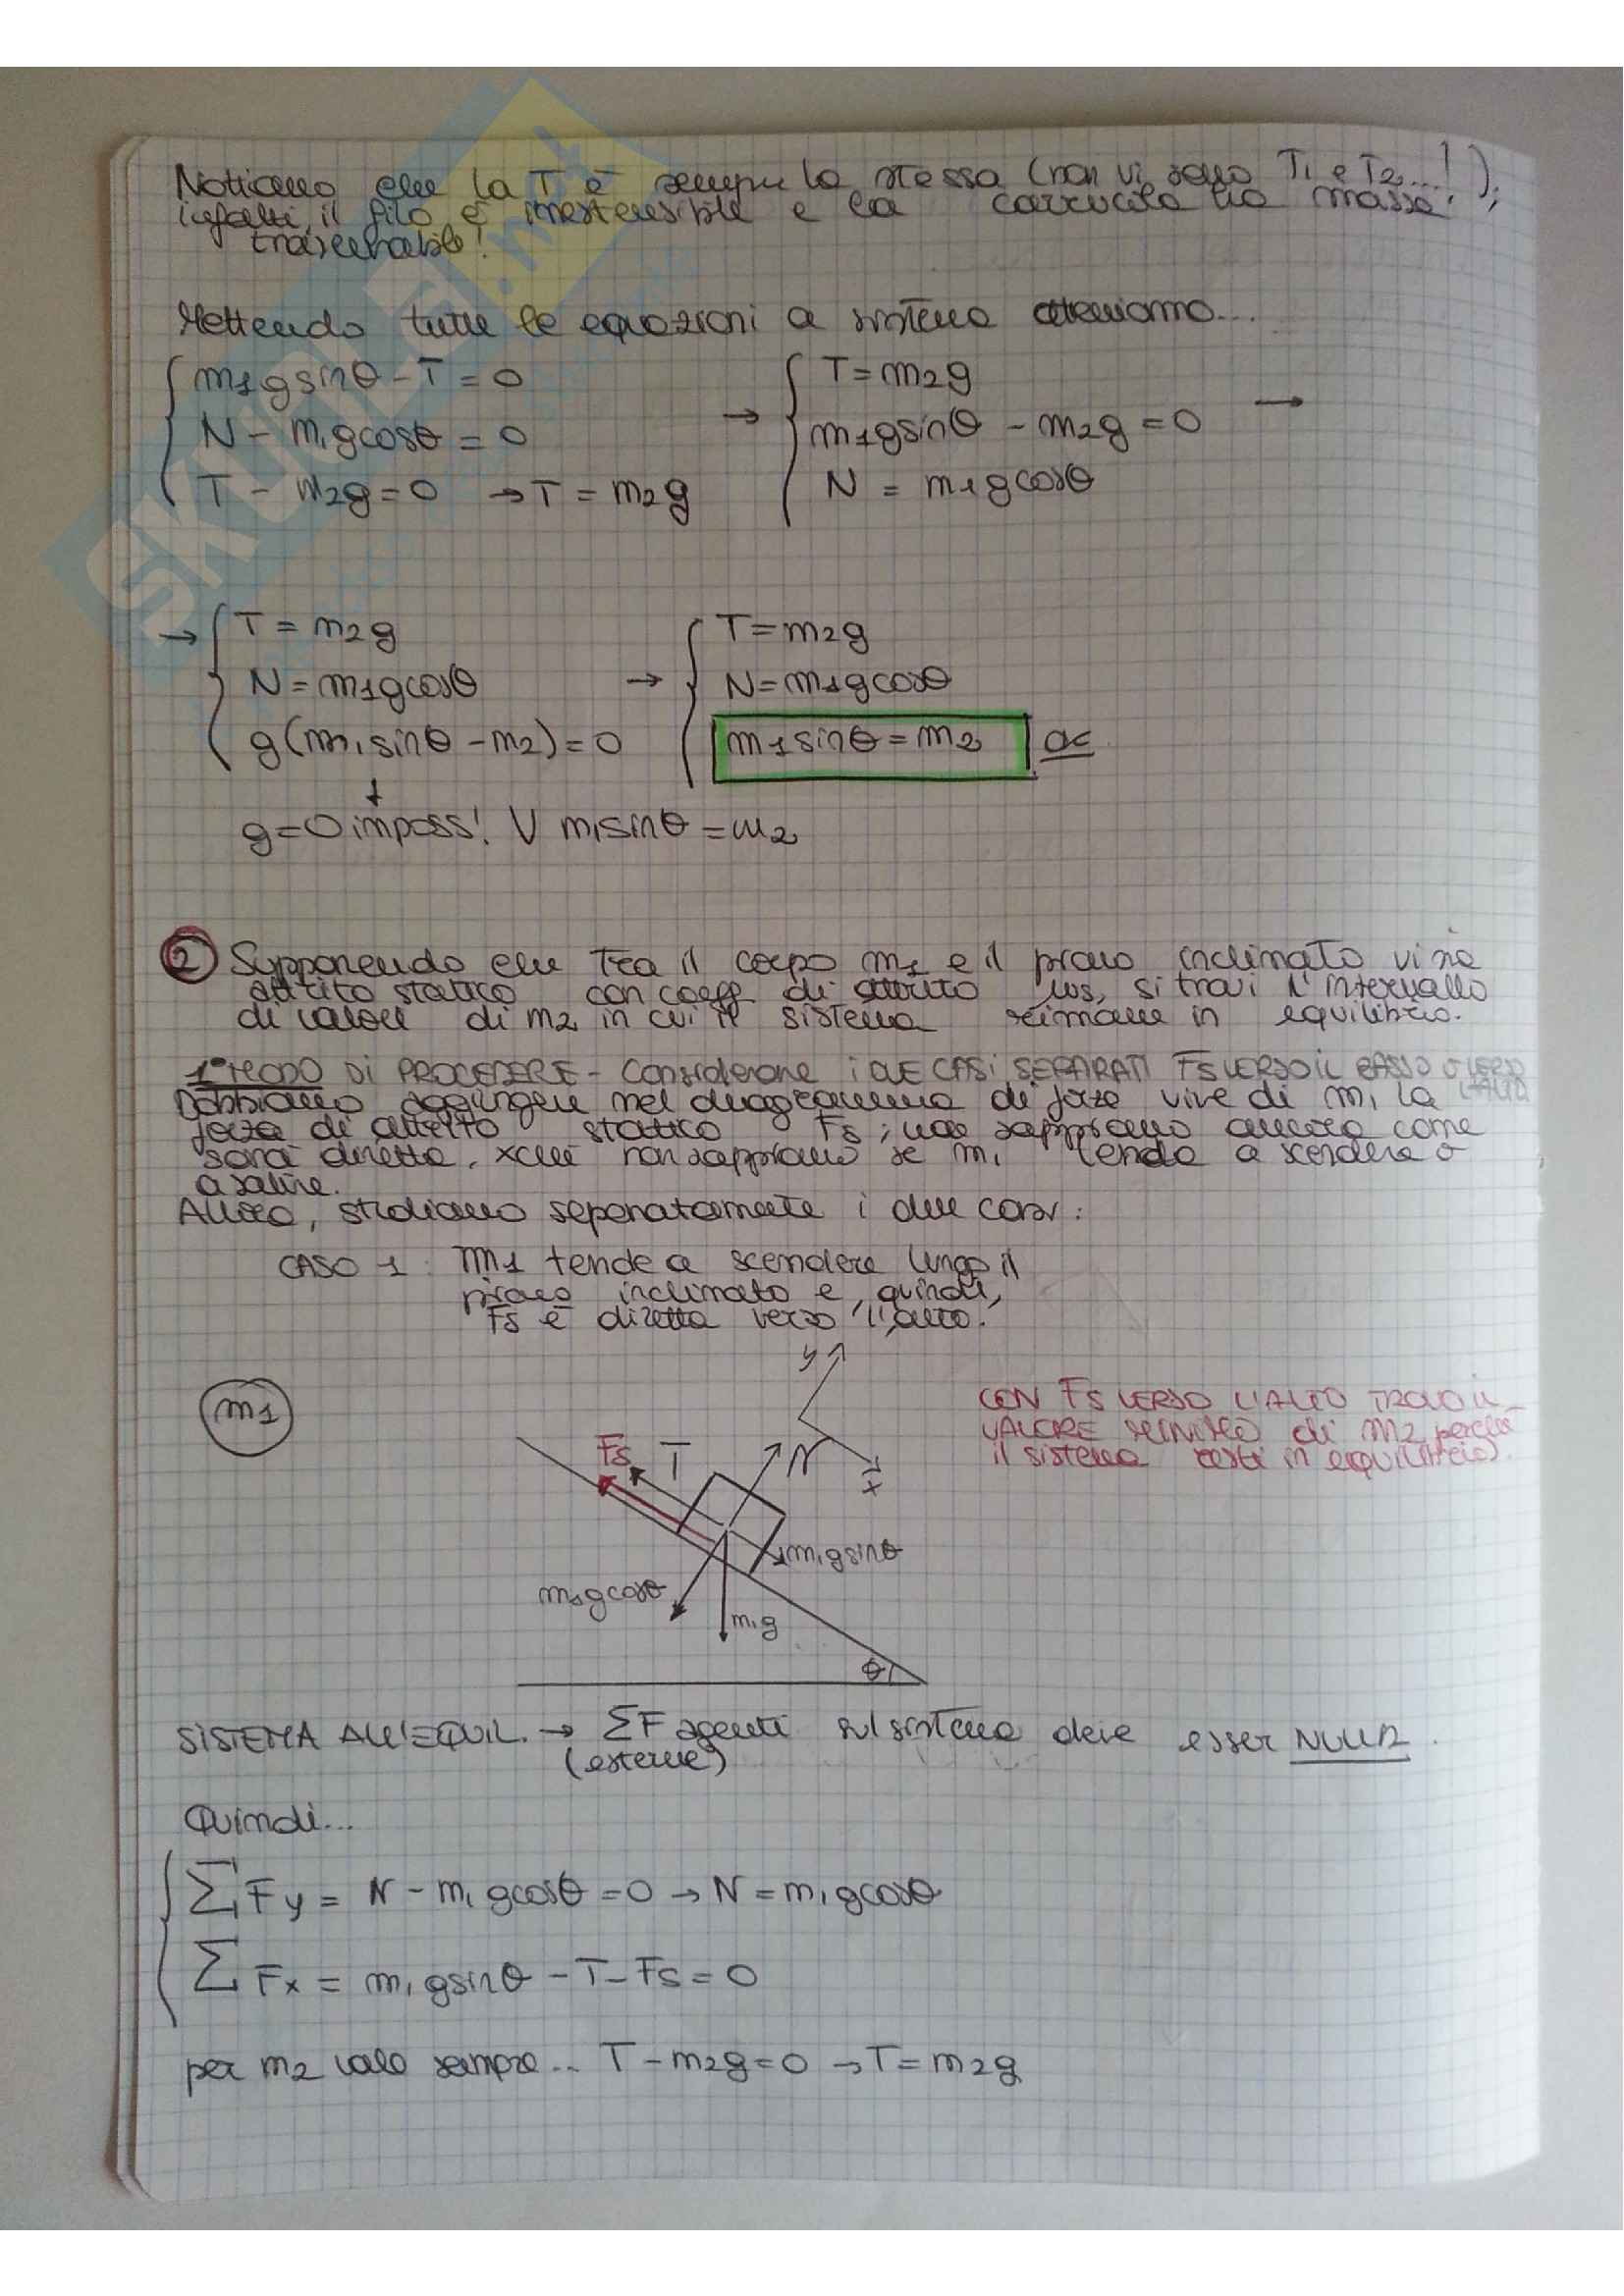 Notiamo che la T è sempre la stessa (non vi sono T1 e T2...!);
infatti, il filo è inestensibile e la carrucola ha massa
trascurabile!
Mettendo tutte le equazioni a sistema otteniamo...
m1gsinθ - T = 0
N - m1gcosθ = 0
T - m2g = 0 → T = m2g
→ T = m2g
m1gsinθ - m2g = 0 →
N = m1gcosθ
→ T = m2g
N = m1gcosθ
g(m1sinθ - m2) = 0
→ T = m2g
N = m1gcosθ
m1sinθ = m2
g = 0 imposs! V m1sinθ = m2
2 Supponendo che tra il corpo m1 e il piano inclinato vi sia
attrito statico con coeff di attrito μs, si trovi l'intervallo
di valori di m2 in cui il sistema rimane in equilibrio.
1° MODO DI PROCEDERE - Considerare i DUE CASI SEPARATI FS VERSO IL BASSO o VERSO
L'ALTO
Dobbiamo aggiungere nel diagramma di forze vive di m1 la
forza di attrito statico Fs; non sappiamo ancora come
sarà diretta, xchè non sappiamo se m1 tenda a scendere o
a salire.
Allora, studiamo separatamente i due casi:
CASO 1: m1 tende a scendere lungo il
piano inclinato e, quindi,
Fs è diretta verso l'alto.
m1
y
x
CON FS VERSO L'ALTO TROVO IL
VALORE MINIMO di m2 perché
il sistema resti in equilibrio).
Fs T N
m1gsinθ
m1gcosθ
m1g
θ
SISTEMA ALL'EQUIL. → ΣF agenti sul sistema deve esser NULLA.
(esterne)
Quindi...
ΣFy = N - m1gcosθ = 0 → N = m1gcosθ
ΣFx = m1gsinθ - T - Fs = 0
per m2 vale sempre... T - m2g = 0 → T = m2g